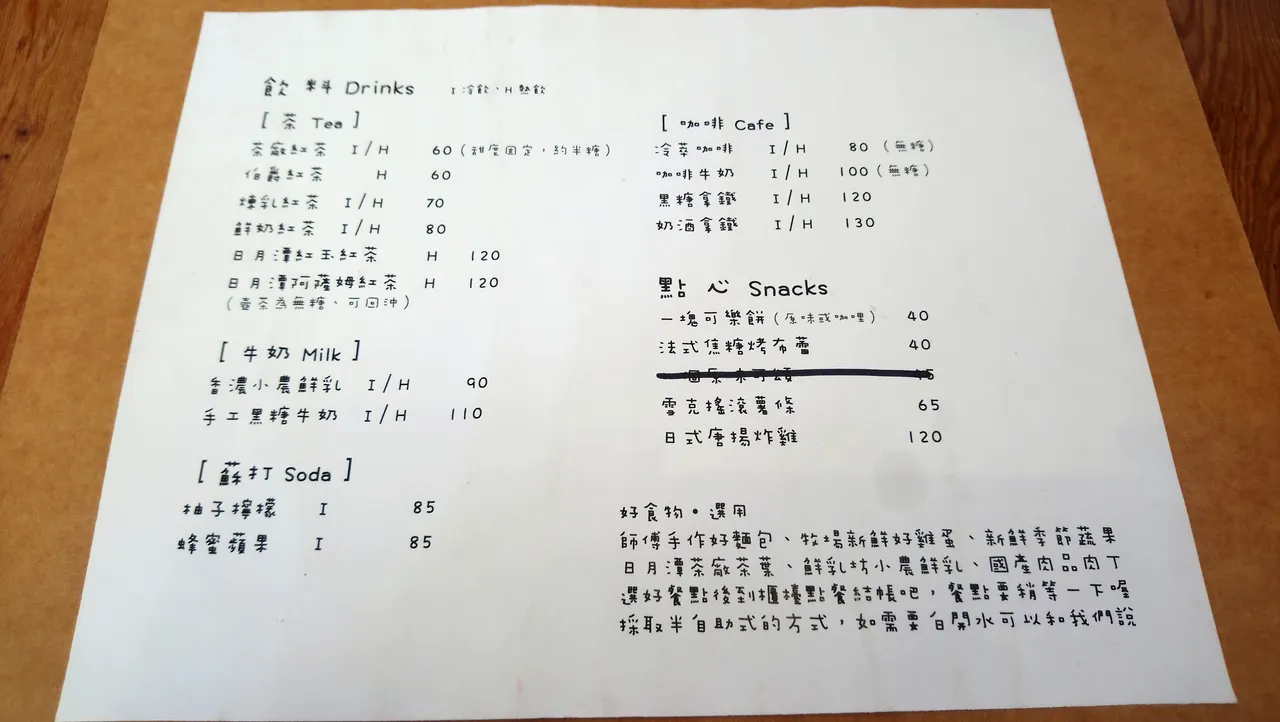 飲料 Drinks I 冷飲、H 熱飲
[ 茶 Tea ]
茶廠紅茶 I/H 60(甜度固定,約半糖)
伯爵紅茶 H 60
煉乳紅茶 I/H 70
鮮奶紅茶 I/H 80
日月潭紅玉紅茶 H 120
日月潭阿薩姆紅茶 H 120
(壺茶為無糖、可回沖)
[ 牛奶 Milk ]
香濃小農鮮乳 I/H 90
手工黑糖牛奶 I/H 110
[ 蘇打 Soda ]
柚子檸檬 I 85
蜂蜜蘋果 I 85
[ 咖啡 Cafe ]
冷萃咖啡 I/H 80 (無糖)
咖啡牛奶 I/H 100(無糖)
黑糖拿鐵 I/H 120
奶酒拿鐵 I/H 130
點心 Snacks
一塊可樂餅(原味或咖哩) 40
法式焦糖烤布蕾 40
一個原味可頌 45
雪克搖滾薯條 65
日式唐揚炸雞 120
好食物。選用
師傅手作好麵包、牧場新鮮好雞蛋、新鮮季節蔬果
日月潭茶廠茶葉、鮮乳坊小農鮮乳、國產肉品肉丁
選好餐點後到櫃檯點餐結帳吧,餐點要稍等一下喔
採取半自助式的方式,如需要白開水可以和我們說